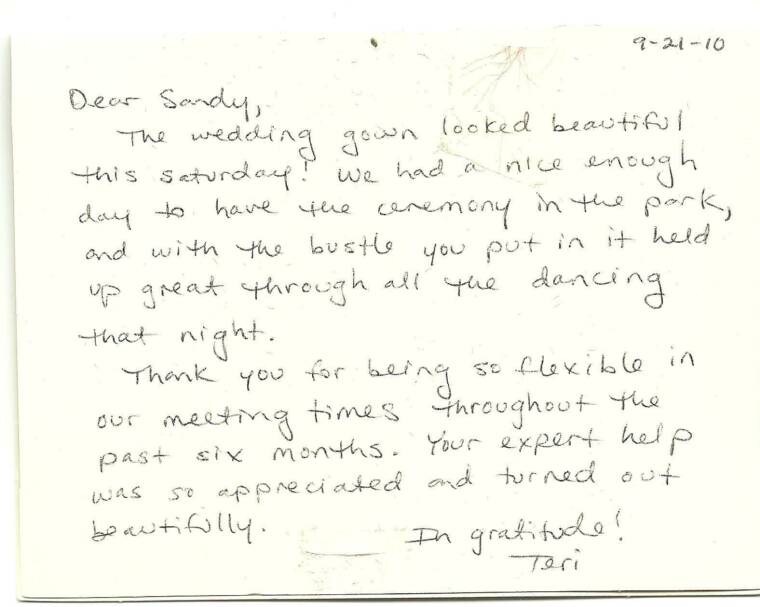 9-21-10
Dear Sandy,
The wedding gown looked beautiful
this saturday! We had a nice enough
day to have the ceremony in the park,
and with the bustle you put in it held
up great through all the dancing
that night.
Thank you for being so flexible in
our meeting times throughout the
past six months. Your expert help
was so appreciated and turned out
beautifully.
In gratitude!
Teri